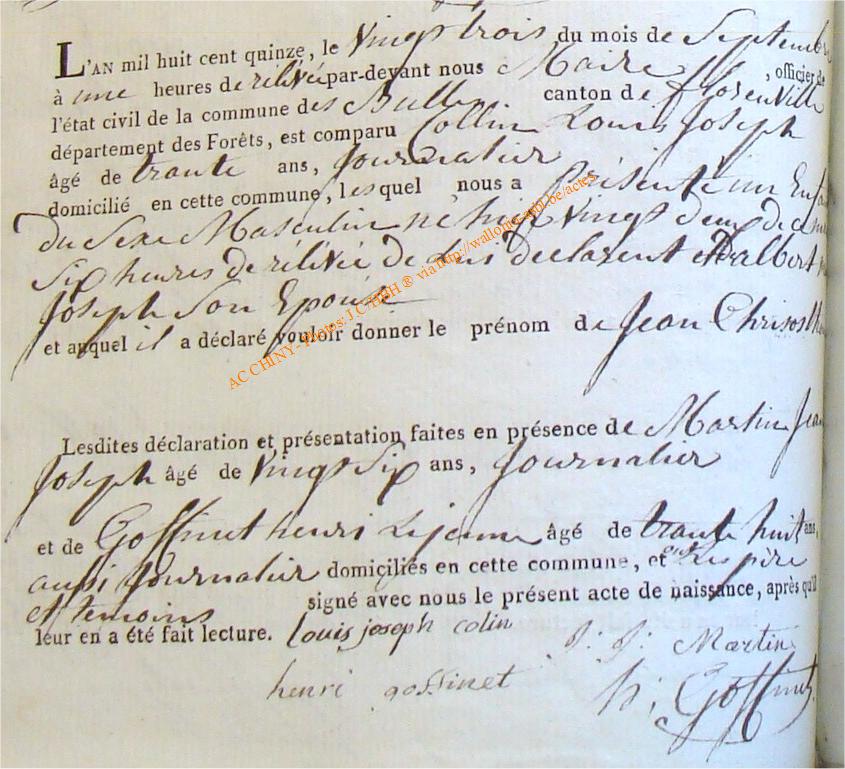 L'AN mil huit cent quinze, le Vingt trois du mois de Septembre
à une heures de rélivée par-devant nous Maire , officier de
l'état civil de la commune des Bulles canton de florenville
département des Forêts, est comparu Collin Louis Joseph
âgé de trante ans, Journalier
domicilié en cette commune, lesquel nous a Présenté un Enfant
du Sexe Masculin né hier vingt deux de ce mois
Six heures de rélivée de luis declarent et Dalbert
Joseph Son Epouse
et auquel il a déclaré vouloir donner le prénom de Jean Chrisos
Lesdites déclaration et présentation faites en présence de Martin Jean
Joseph âgé de Vingt Six ans, Journalier
et de Goffinet henri Lejeune âgé de trante huit ans,
aussi Journalier domiciliés en cette commune, et les père
et temoins signé avec nous le présent acte de naissance, après qu'il
leur en a été fait lecture. Louis joseph colin
J: J: Martin
henri goffinet
h; Goffinet
AC CHINY - Photos: J.C. HBH ® via http://wallonie-aubl.be/actes